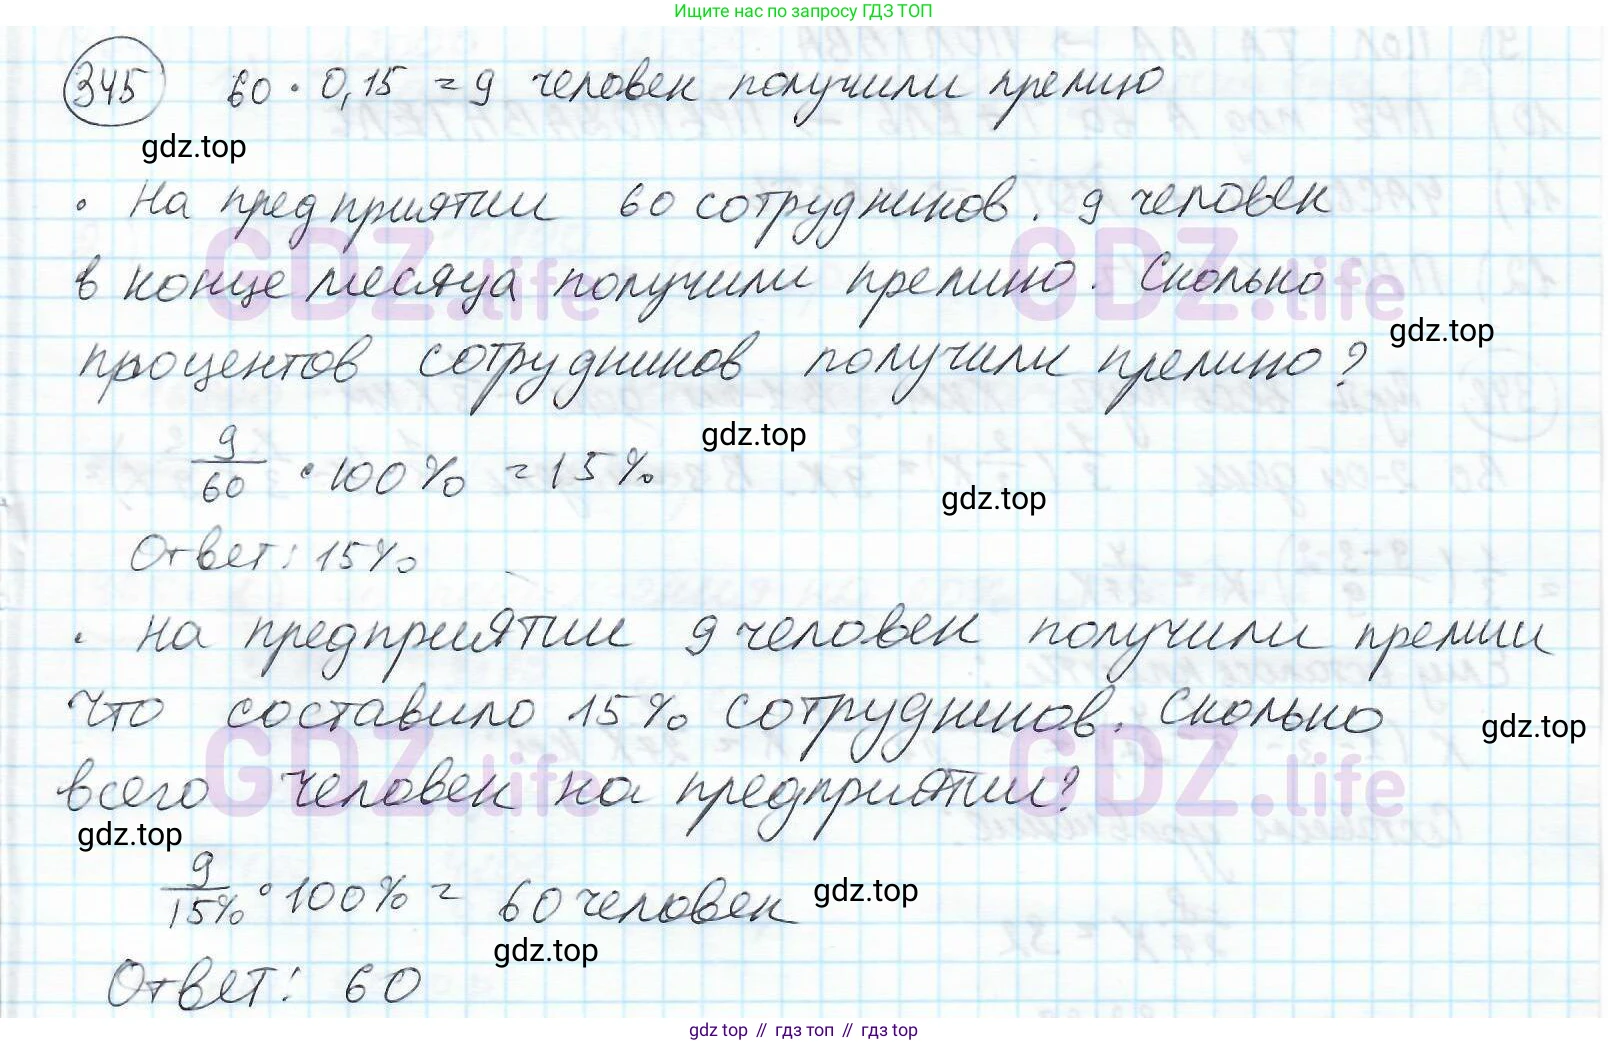 Ищите нас по запросу ГДЗ ТОП
345 60 · 0,15 = 9 человек получили премию
gdz.top
· На предприятии 60 сотрудников. 9 человек
GDZ.life GDZ.life
в конце месяца получили премию. Сколько
gdz.top
процентов сотрудников получили премию?
gdz.top
9/60 · 100% = 15%
gdz.top
Ответ: 15%
· На предприятии 9 человек получили премии
что составило 15% сотрудников. Сколько
gdz.top
GDZ.life GDZ.life
всего человек на предприятии?
gdz.top
9/15% · 100% = 60 человек
gdz.top
gdz.top
Ответ: 60
gdz top // гдз топ // гдз top